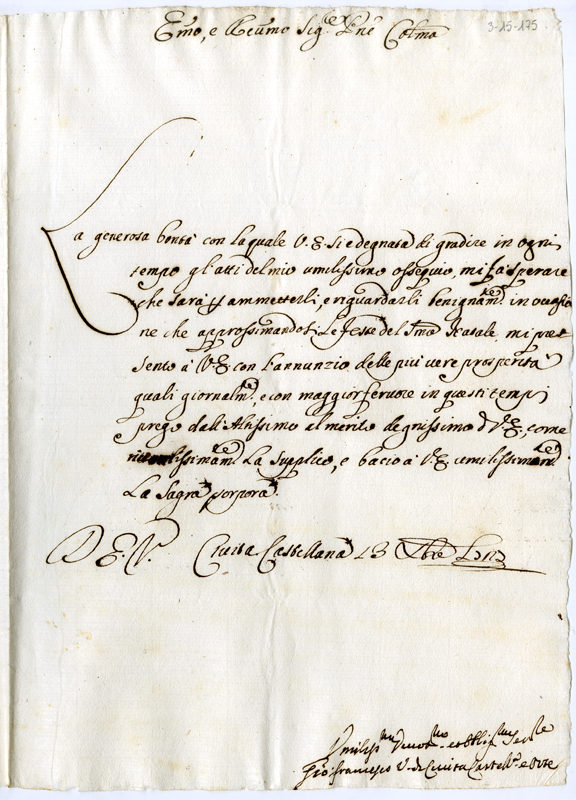 Emo, e Reumo Sig.re Pne Colmo
3-15-175
La generosa bontà con la quale V. E. si è degnata di gradire in ogni
tempo gl'atti del mio umilissimo ossequio, mi fà sperare
che sarà p ammetterli, e riguardarli benignam.te in occasio
ne che approssimandosi le feste del Smo Natale, mi pre
sento à V. E. con l'annunzio delle più vere prosperità
quali giornalm.te, e con maggior fervore in questi tempi
prego dall'Altissimo al merito degnissimo d V. E., come
La Supplico, e bacio à V. E. umilissimam.te
La Sagra porpora.
D. E. V. Civita Castellana 13 Xbre
Umiliss.mo Devot.mo et Obblig.mo Ser.re
Gio: Francesco V. di Civita Castell.a e Orte